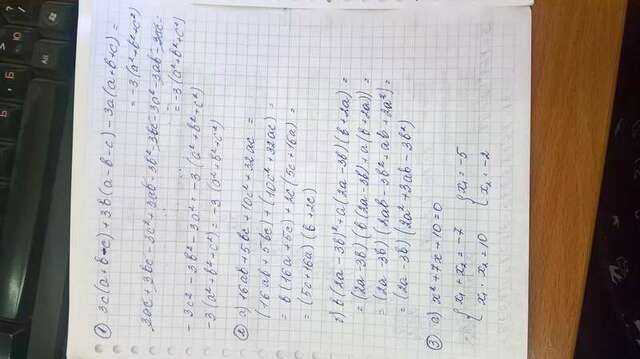 ① 3c(a+b-c)+3b(a-b-c)-3a(a+b+c)=
= -3(a²+b²+c²)
3ac+3bc-3c²+3ab-3b²-3bc-3a²-3ab-3ac=
= -3(a²+b²+c²)
-3c²-3b²-3a²= -3(a²+b²+c²)
-3(a²+b²+c²)= -3(a²+b²+c²)
② а) 16ab+5bc+10c²+32ac=
(16ab+5bc)+(10c²+32ac)=
= b(16a+5c)+2c(5c+16a)=
= (5c+16a)(b+2c)
b(2a-3b)²+a(2a-3b)(b+2a)=
= (2a-3b)(b(2a-3b)+a(b+2a))=
= (2a-3b)(2ab-3b²+ab+2a²)=
= (2a-3b)(2a²+3ab-3b²)
③ а) x²+7x+10=0
{x₁+x₂=-7 {x₁=-5
{x₁·x₂=10 {x₂=-2